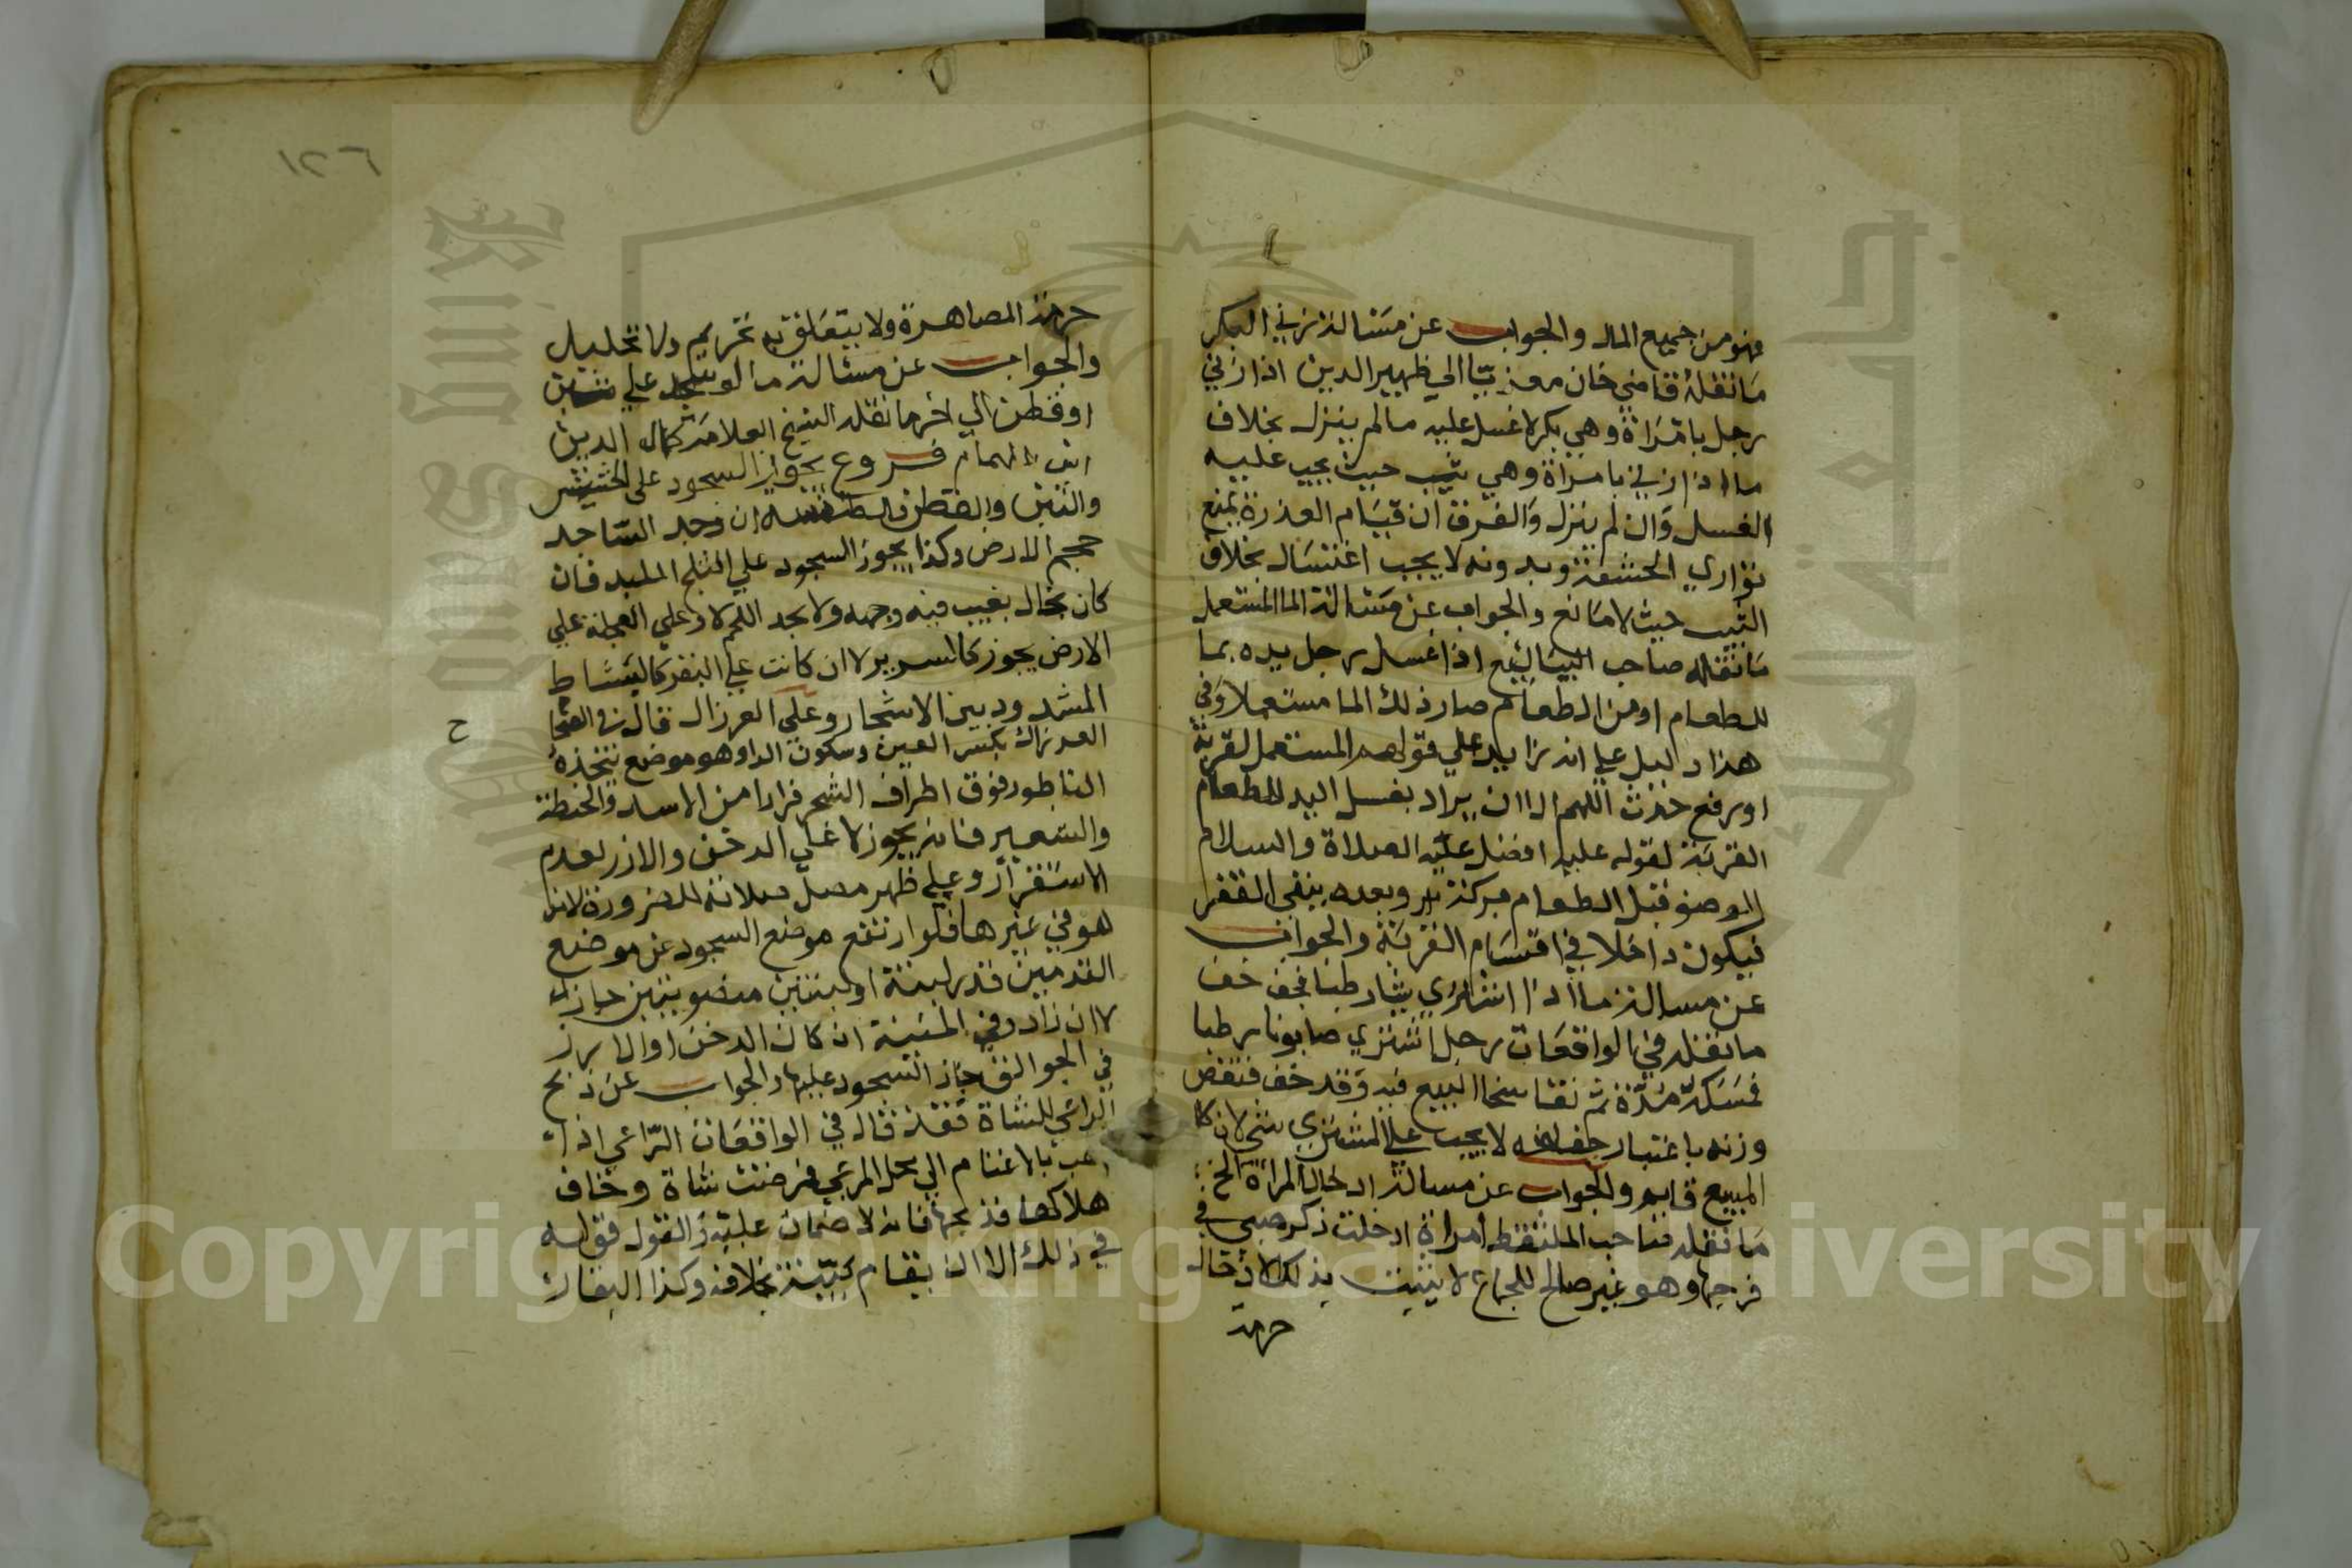 فهو من جميع المال والجواب عن مسالة زني البكر
ما نقله قاضي خان معزيا الي ظهير الدين اذا زني
رجل بامراة وهي بكر لا غسل عليه ما لم ينزل بخلاف
ما اذا زني بامراة وهي ثيب حيث يجب عليه
الغسل وان لم ينزل والفرق ان قيام العذرة يمنع
تواري الحشفة وبدونه لا يجب اغتسال بخلاف
الثيب حيث لا مانع والجواب عن مسالة الما المستعمل
ما نقله صاحب البدائع اذا غسل رجل يده بما
للطعام او من الطعام صار ذلك الما مستعملا وفي
هذا دليل علي انه زايد علي قولهم المستعمل لقربة
او رفع حدث اللهم الا ان يراد بغسل اليد للطعام
القربة لقوله عليه افضل الصلاة والسلام
الوضو قبل الطعام بركة وبعده ينفي الفقر
فيكون داخلا في اقسام القربة والجواب
عن مسالة ما اذا اشتري شيا رطبا فجف خف
ما نقله في الواقعات رجل اشتري صابونا رطبا
فمسكه مدة ثم تفاسخا البيع فيه وقد خف فنقص
وزنه باعتبار جفافه لا يجب علي المشتري شي لان كا
المبيع قايم والجواب عن مسالة ادخال المراة الخ
ما نقله صاحب الملتقط امراة ادخلت ذكر صبي في
فرجها وهو غير صالح للجماع لا يثبت بذلك الادخال
حرمة
١٢٦
حرمة المصاهرة ولا يتعلق به تحريم ولا تحليل
والجواب عن مسالة ما لو سجد علي تبن
او قطن الي اخر ما نقله الشيخ العلامة كمال الدين
ابن الهمام فروع يجوز السجود على الحشيش
والتبن والقطن ان وجد الساجد
حجم الارض وكذا يجوز السجود علي الثلج الملبد فان
كان بحال يغيب فيه وجهه ولا يجد الحجم لا وعلي العجلة علي
الارض يجوز كالسرير لا ان كانت علي البقر كالبساط
المشدود بين الاشجار وعلى العرزال قال في الصحا
ح
العرزال بكسر العين وسكون الرا وهو موضع يتخذه
الناطور فوق اطراف الشجر فرارا من الاسد والحنطة
والشعير فانه يجوز لا علي الدخن والارز لعدم
الاستقرار وعلي ظهر مصل صلاته للضرورة لا ان
هو في غيرها فلو ارتفع موضع السجود عن موضع
القدمين قدر لبنة او لبنتين منصوبتين جاز
لا ان زاد وفي المنية ان كان الدخن او الارز
في الجوالق جاز السجود عليها والجواب عن ذبح
الراعي للشاة فقد قال في الواقعات الراعي اذا
ذهب بالاغنام الي محل المرعي فمرضت شاة وخاف
هلاكها فذبحها فانه لا ضمان عليه والقول قوله
في ذلك الا ان يقام بينة بخلافه وكذا البقار
Copyright © King Saud University